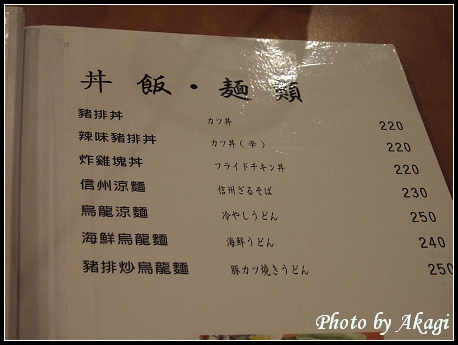 丼飯・麵類
豬排丼 カツ丼 220
辣味豬排丼 カツ丼(辛) 220
炸雞塊丼 フライドチキン丼 220
信州涼麵 信州ざるそば 230
烏龍涼麵 冷やしうどん 250
海鮮烏龍麵 海鮮うどん 240
豬排炒烏龍麵 豚カツ焼きうどん 250
Photo by Akagi